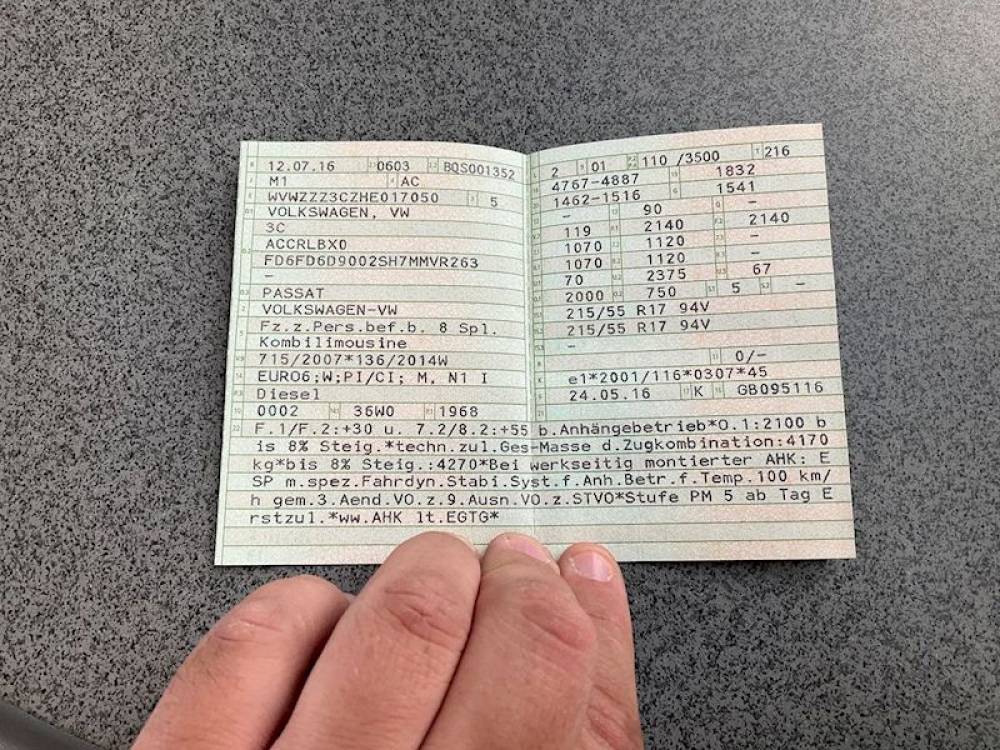 12.07.16 0603 BQS001352
M1 AC
WVWZZZ3CZHE017050 5
VOLKSWAGEN, VW
3C
ACCRLBX0
FD6FD6D9002SH7MMVR263
–
PASSAT
VOLKSWAGEN-VW
Fz.z.Pers.bef.b. 8 Spl.
Kombilimousine
715/2007*136/2014W
EURO6;W;PI/CI; M, N1 I
Diesel
0002 36W0 1968
2 01 110 /3500 216
4767-4887 1832
1462-1516 1541
– 90 –
119 2140 2140
1070 1120 –
1070 1120 –
70 2375 67
2000 750 5 –
215/55 R17 94V
215/55 R17 94V
–
0/–
e1*2001/116*0307*45
24.05.16 K GB095116
F.1/F.2:+30 u. 7.2/8.2:+55 b.Anhängebetrieb*O.1:2100 b
is 8% Steig.*techn.zul.Ges-Masse d.Zugkombination:4170
kg*bis 8% Steig.:4270*Bei werkseitig montierter AHK: E
SP m.spez.Fahrdyn.Stabi.Syst.f.Anh.Betr.f.Temp.100 km/
h gem.3.Aend.VO.z.9.Ausn.VO.z.STVO*Stufe PM 5 ab Tag E
rstzul.*ww.AHK lt.EGTG*